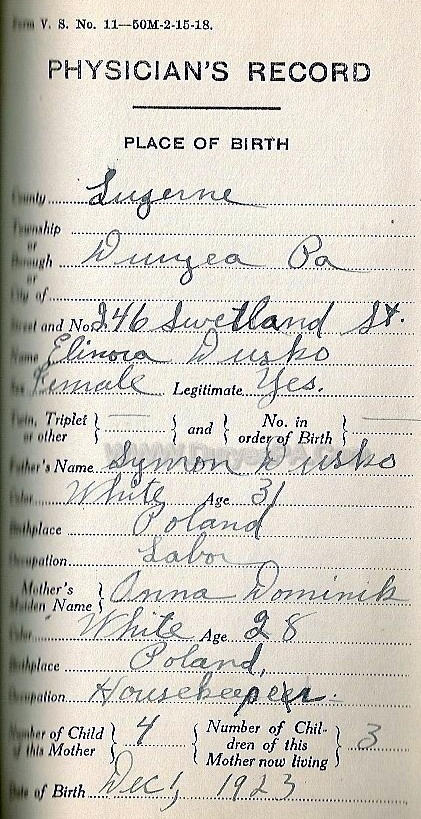 Form V. S. No. 11—50M-2-15-18.
PHYSICIAN'S RECORD
PLACE OF BIRTH
County Luzerne
Township
or
Borough Duryea Pa
or
City of
Street and No. 246 Swetland St.
Name Elinora Dusko
Sex Female Legitimate Yes.
Twin, Triplet or other } — { and } No. in order of Birth } —
Father's Name Symon Dusko
Color White Age 31
Birthplace Poland
Occupation Labor
Mother's Maiden Name } Anna Dominik
Color White Age 28
Birthplace Poland,
Occupation Housekeeper.
Number of Child of this Mother } 4 { Number of Children of this Mother now living } 3
Date of Birth Dec 1, 1923